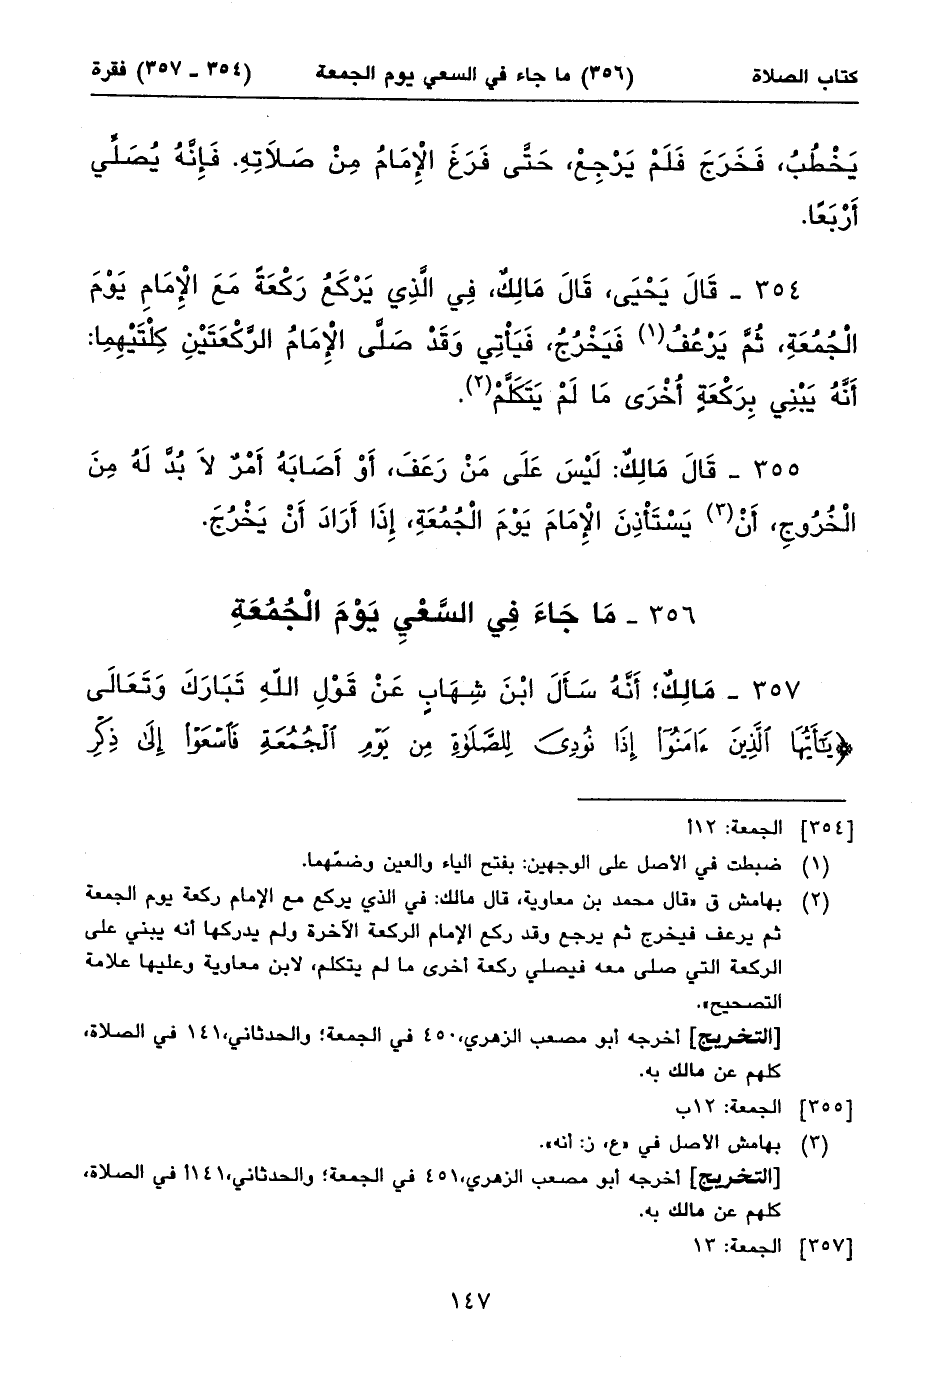 كتاب الصلاة (٣٥٦) ما جاء في السعي يوم الجمعة (٣٥٤ - ٣٥٧) فقرة
يَخْطُبُ، فَخَرَجَ فَلَمْ يَرْجِعْ، حَتَّى فَرَغَ الْإِمَامُ مِنْ صَلاَتِهِ. فَإِنَّهُ يُصَلِّي
أَرْبَعًا.
٣٥٤ - قَالَ يَحْيَى، قَالَ مَالِكٌ، فِي الَّذِي يَرْكَعُ رَكْعَةً مَعَ الْإِمَامِ يَوْمَ
الْجُمُعَةِ، ثُمَّ يَرْعُفُ(١) فَيَخْرُجُ، فَيَأْتِي وَقَدْ صَلَّى الْإِمَامُ الرَّكْعَتَيْنِ كِلْتَيْهِمِا:
أَنَّهُ يَبْنِي بِرَكْعَةٍ أُخْرَى مَا لَمْ يَتَكَلَّمْ(٢).
٣٥٥ - قَالَ مَالِكٌ: لَيْسَ عَلَى مَنْ رَعَفَ، أَوْ أَصَابَهُ أَمْرٌ لاَ بُدَّ لَهُ مِنَ
الْخُرُوجِ، أَنْ(٣) يَسْتَأْذِنَ الْإِمَامَ يَوْمَ الْجُمُعَةِ، إِذَا أَرَادَ أَنْ يَخْرُجَ.
٣٥٦ - مَا جَاءَ فِي السَّعْيِ يَوْمَ الْجُمُعَةِ
٣٥٧ - مَالِكٌ؛ أَنَّهُ سَأَلَ ابْنَ شِهَابٍ عَنْ قَوْلِ اللّهِ تَبَارَكَ وَتَعَالَى
﴿يَٰٓأَيُّهَا ٱلَّذِينَ ءَامَنُوٓا۟ إِذَا نُودِىَ لِلصَّلَوٰةِ مِن يَوْمِ ٱلْجُمُعَةِ فَٱسْعَوْا۟ إِلَىٰ ذِكْرِ
[٣٥٤] الجمعة: ١٢أ
(١) ضبطت في الاصل على الوجهين: بفتح الياء والعين وضمّهما.
(٢) بهامش ق «قال محمد بن معاوية، قال مالك: في الذي يركع مع الإمام ركعة يوم الجمعة
ثم يرعف فيخرج ثم يرجع وقد ركع الإمام الركعة الآخرة ولم يدركها أنه يبني على
الركعة التي صلى معه فيصلي ركعة أخرى ما لم يتكلم، لابن معاوية وعليها علامة
التصحيح».
[التخريج] أخرجه أبو مصعب الزهري،٤٥٠ في الجمعة؛ والحدثاني،١٤١ في الصلاة،
كلهم عن مالك به.
[٣٥٥] الجمعة: ١٢ب
(٣) بهامش الأصل في «ع، ز: أنه».
[التخريج] أخرجه أبو مصعب الزهري،٤٥١ في الجمعة؛ والحدثاني،١٤١أ في الصلاة،
كلهم عن مالك به.
[٣٥٧] الجمعة: ١٣
١٤٧